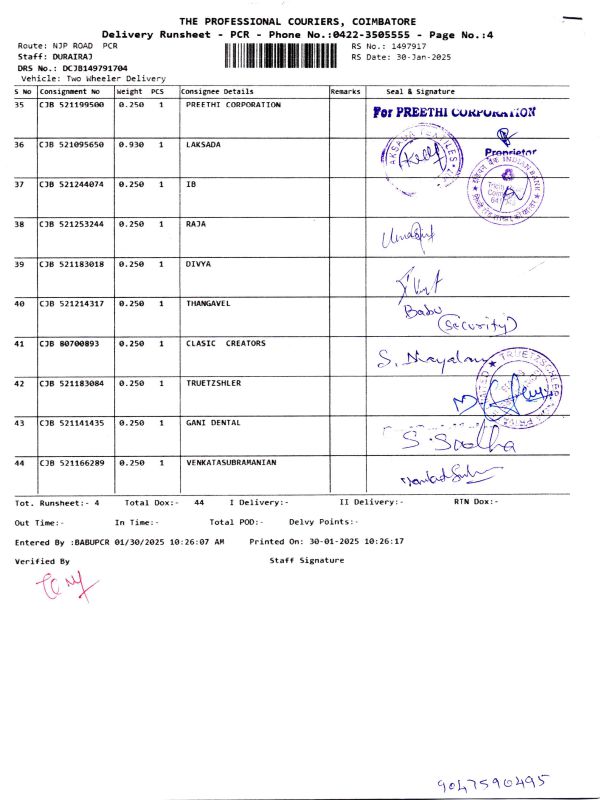 THE PROFESSIONAL COURIERS, COIMBATORE
Delivery Runsheet - PCR - Phone No.:0422-3505555 - Page No.:4
Route: NJP ROAD PCR RS No.: 1497917
Staff: DURAIRAJ RS Date: 30-Jan-2025
DRS No.: DCJB149791704
Vehicle: Two Wheeler Delivery
S No Consignment No Weight PCS Consignee Details Remarks Seal & Signature
35 CJB 521199500 0.250 1 PREETHI CORPORATION For PREETHI CORPORATION
Proprietor
36 CJB 521095650 0.930 1 LAKSADA
37 CJB 521244074 0.250 1 IB INDIAN BANK
38 CJB 521253244 0.250 1 RAJA
39 CJB 521183018 0.250 1 DIVYA
40 CJB 521214317 0.250 1 THANGAVEL Babu (Security)
41 CJB 80700893 0.250 1 CLASIC CREATORS
42 CJB 521183084 0.250 1 TRUETZSHLER TRUETZSCHLER
43 CJB 521141435 0.250 1 GANI DENTAL
44 CJB 521166289 0.250 1 VENKATASUBRAMANIAN
Tot. Runsheet:- 4 Total Dox:- 44 I Delivery:- II Delivery:- RTN Dox:-
Out Time:- In Time:- Total POD:- Delvy Points:-
Entered By :BABUPCR 01/30/2025 10:26:07 AM Printed On: 30-01-2025 10:26:17
Verified By Staff Signature
9047590495